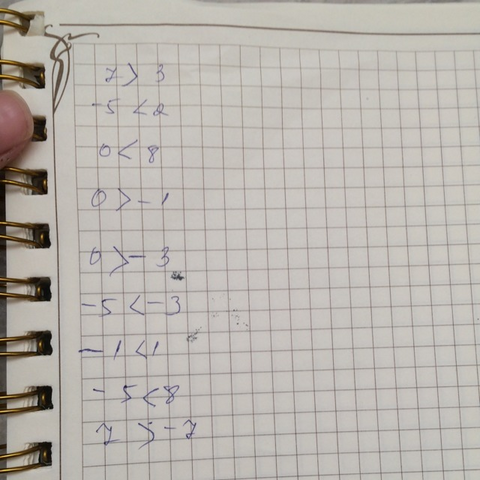 7 > 3
-5 < 2
0 < 8
0 > -1
0 > -3
-5 < -3
-1 < 1
-5 < 8
7 > -7